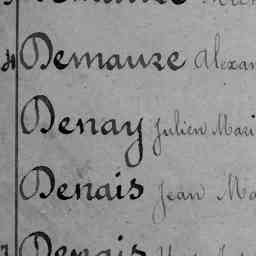 Demauze Alexan
Denay Julien Mari
Denais Jean Ma
Denais